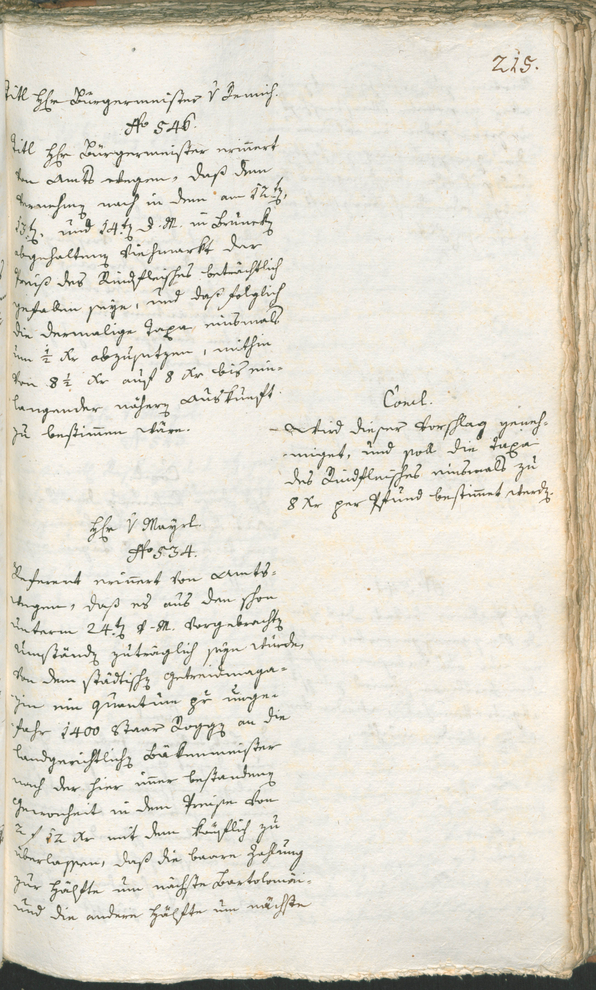 215.
Titl Hhr Bürgermeister v Remich.
No 546.
Titl Hhr Bürgermeister erinnert
von Amts wegen, daß dem
Vernehmen nach in dem am 12ten,
13ten, und 14ten d. M. in Bruneck
abgehaltenen Viehmarkt der
Preiß des Rindfleisches beträchtlich
gefallen seye, und daß folglich
die dermalige Taxa, einsmals
um ½ Kr abzusetzen, mithin
von 8 ½ Kr auf 8 Kr bis ein-
langender nähern Auskunft
zu bestimmen wäre.
Concl.
Wird dieser Vorschlag geneh-
miget, und soll die Taxa
des Rindfleisches einsmals zu
8 Kr per Pfund bestimmet werden.
Hhr v Mayrl
No 534.
Referent erinnert von Amts-
wegen, daß es aus den schon
unterm 24ten v. M. vorgebrachten
Umständen zuträglich seyn würde,
von dem städtischen Getreidmaga-
zin ein quantum pr unge-
fähr 1400 Staar Roggen an die
landgerichtlichen Bäkenmeister
nach der hier immer bestandenen
Gewohnheit in dem Preise von
2 f 12 Kr mit dem käuflich zu
überlassen, daß die baare Zahlung
zur Hälfte um nächste Bartolomäi-
und die andere Hälfte um nächste